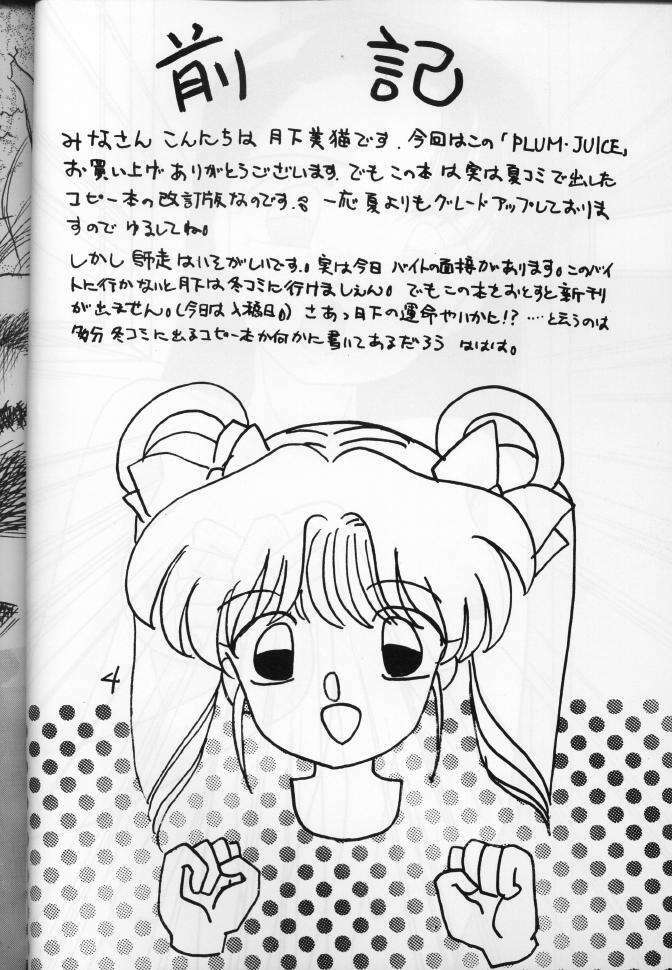 前 記
みなさん こんにちは 月下美猫です．今回はこの「PLUM・JUICE」
お買い上げ ありがとうございます．でもこの本は実は夏コミで出した
コピー本の改訂版なのです． 一応 夏よりもグレードアップしておりま
すので ゆるしてね。
しかし 師走はいそがしいです。実は今日 バイトの面接があります。このバイ
トに行かないと月下は冬コミに行けましぇん。でもこの本をおとすと新刊
が出ません。(今日は入稿日。) さあっ月下の運命やいかに!? ‥‥と云うのは
多分 冬コミに出るコピー本か何かに書いてあるだろう ははは。
4